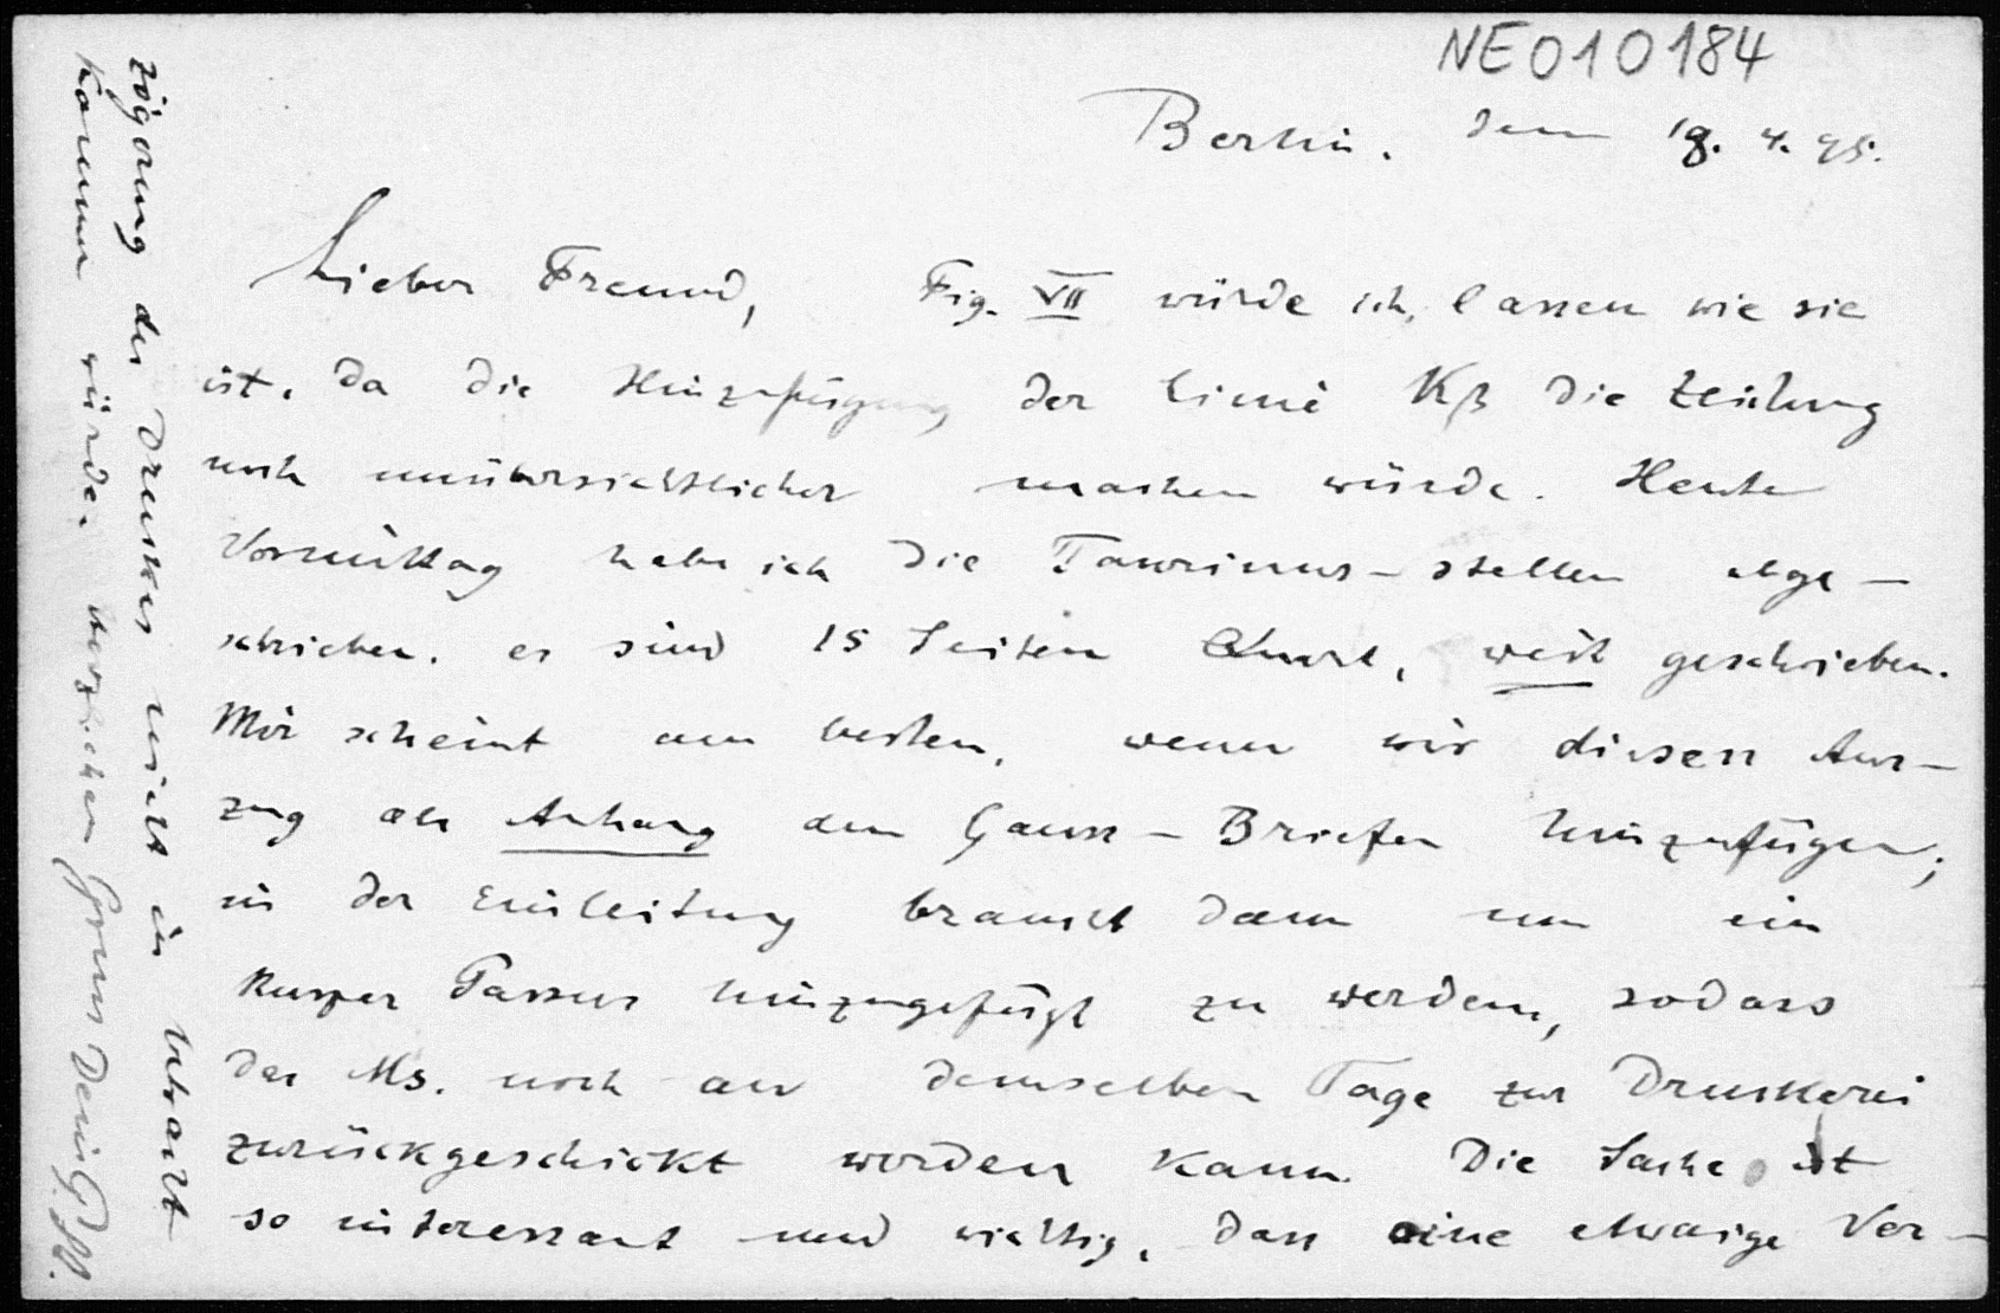 NE010184
Berlin. den 18. 4. 95.
Lieber Freund, Fig. VII würde ich lassen wie sie
ist, da die Hinzufügung der Linie Kβ die Zeichnung
noch unübersichtlicher machen würde. Heute
Vormittag habe ich die Taurinus-stellen abge-
schrieben. es sind 15 Seiten Quart, weit geschrieben.
Mir scheint am besten, wenn wir diesen Aus-
zug als Anhang den Gauss-Briefen hinzufügen;
in der Einleitung braucht dann nur ein
kurzer Passus hinzugefügt zu werden, sodass
das Ms. noch an demselben Tage zur Druckerei
zurückgeschickt werden kann. Die Sache ist
so interessant und wichtig, dass eine etwaige Ver-
zögerung des Druckes nicht in betracht
kommen würde. Herzlichen Gruss Dein G.